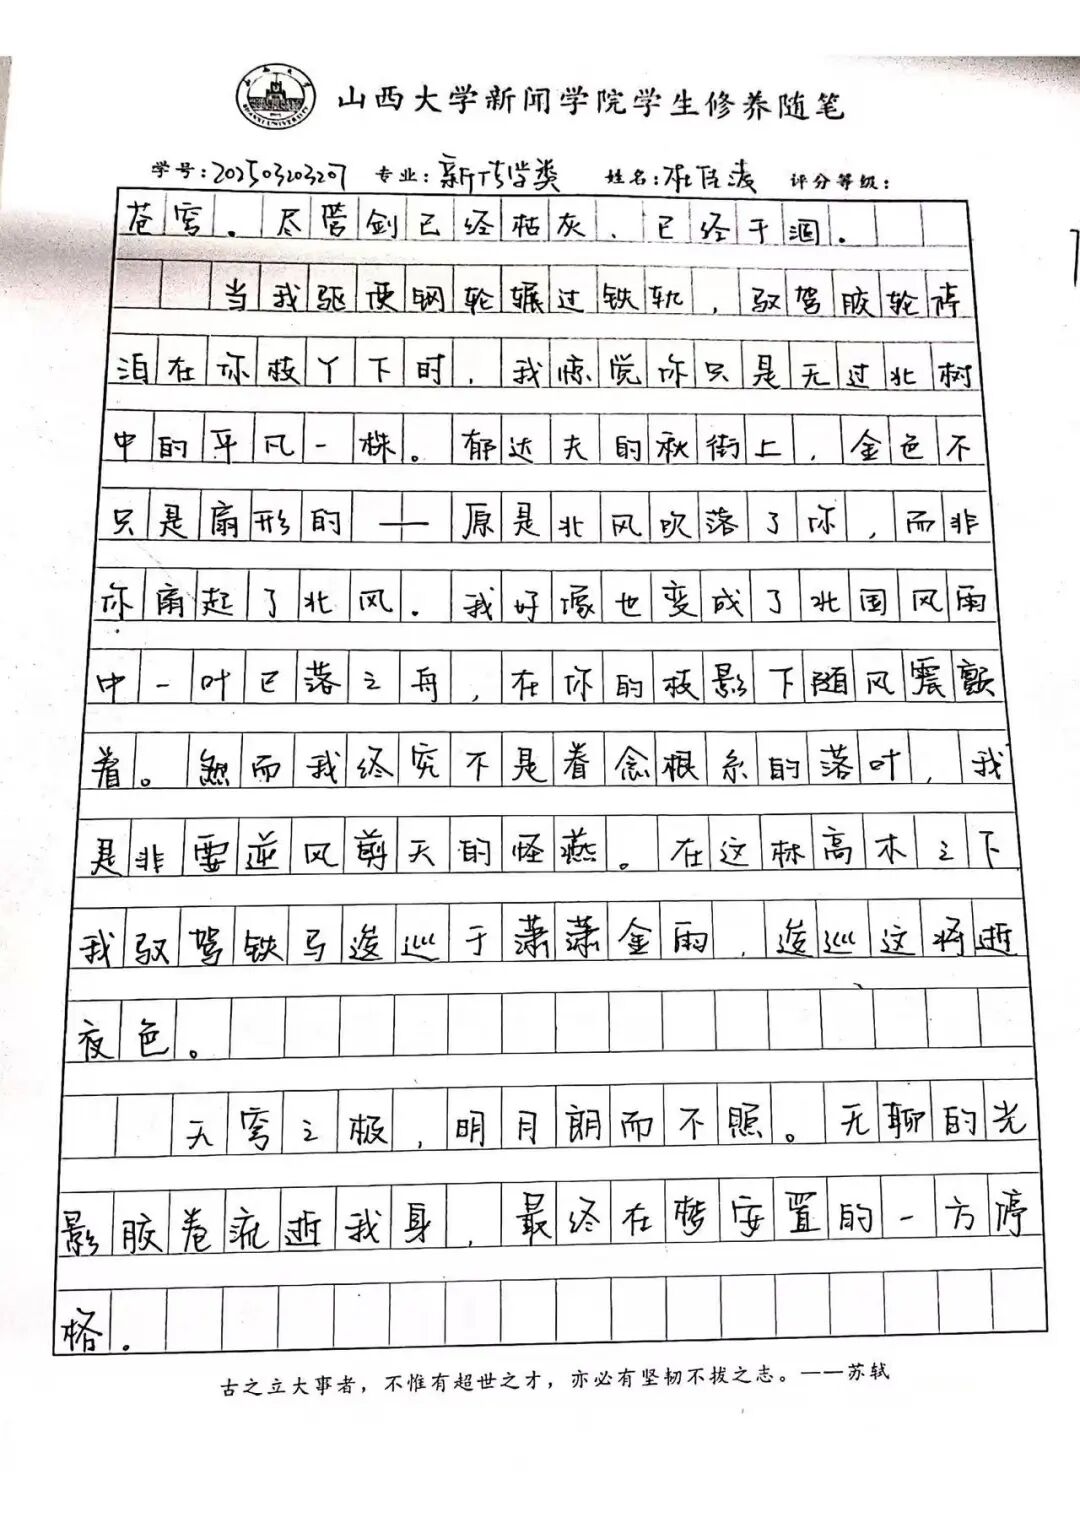 山西大学新闻学院学生修养随笔
学号:202503203207 专业:新传学类 姓名: 评分等级:
苍穹。尽管剑已经枯灰、已经干涸。
当我驱使钢轮辗过铁轨,驭驾胶轮停
泊在你枝丫下时,我惊觉你只是无过北树
中的平凡一株。郁达夫的秋街上,金色不
只是扇形的——原是北风吹落了你,而非
你扇起了北风。我好像也变成了北国风雨
中一叶已落之舟,在你的枝影下随风震颤
着。然而我终究不是眷念根系的落叶,我
是非要逆风剪天的怪燕。在这林高木之下
我驭驾铁马逡巡于潇潇金雨,逡巡这将逝
夜色。
天穹之极,明月朗而不照。无聊的光
影胶卷流逝我身,最终在梦安置的一方停
格。
古之立大事者,不惟有超世之才,亦必有坚韧不拔之志。——苏轼